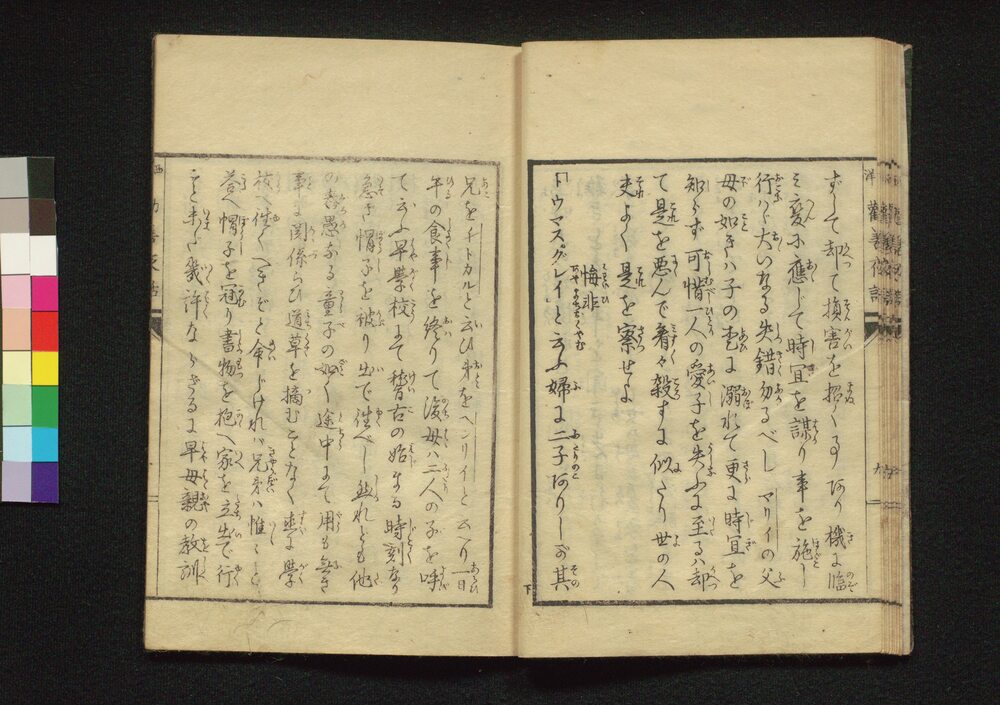 ずして却て損害を招くる事あり機に臨
み変に應じて時宜を謀り事を施し
行はバ大いなる失錯勿るべしマリイの父
母の如きハ子の愛に溺れて更に時宜を
知らず可惜一人の愛子を失ふに至るハ却
て是を悪んで看々殺すに似たり世の人
夫よく是を察せよ
悔非
トウマスグレイと云ふ婦に二子ありしが其
兄をチトカルと云ひ弟をヘンリイと云へり一日
午の食事を終りて後母ハ二人の子を呼
て云ふ早學校にて稽古の始まる時刻なり
急ぎ帽子を被り出で往べし然れども他
の愚なる童子の如く途中にて用も無き
事に関係らひ道草を摘むことなく速に學
校へ往くべきぞと命じけれバ兄弟ハ惟々と
答へ帽子を冠り書物を抱へ家を立出で行
こと未だ幾許ならざるに早母親の教訓